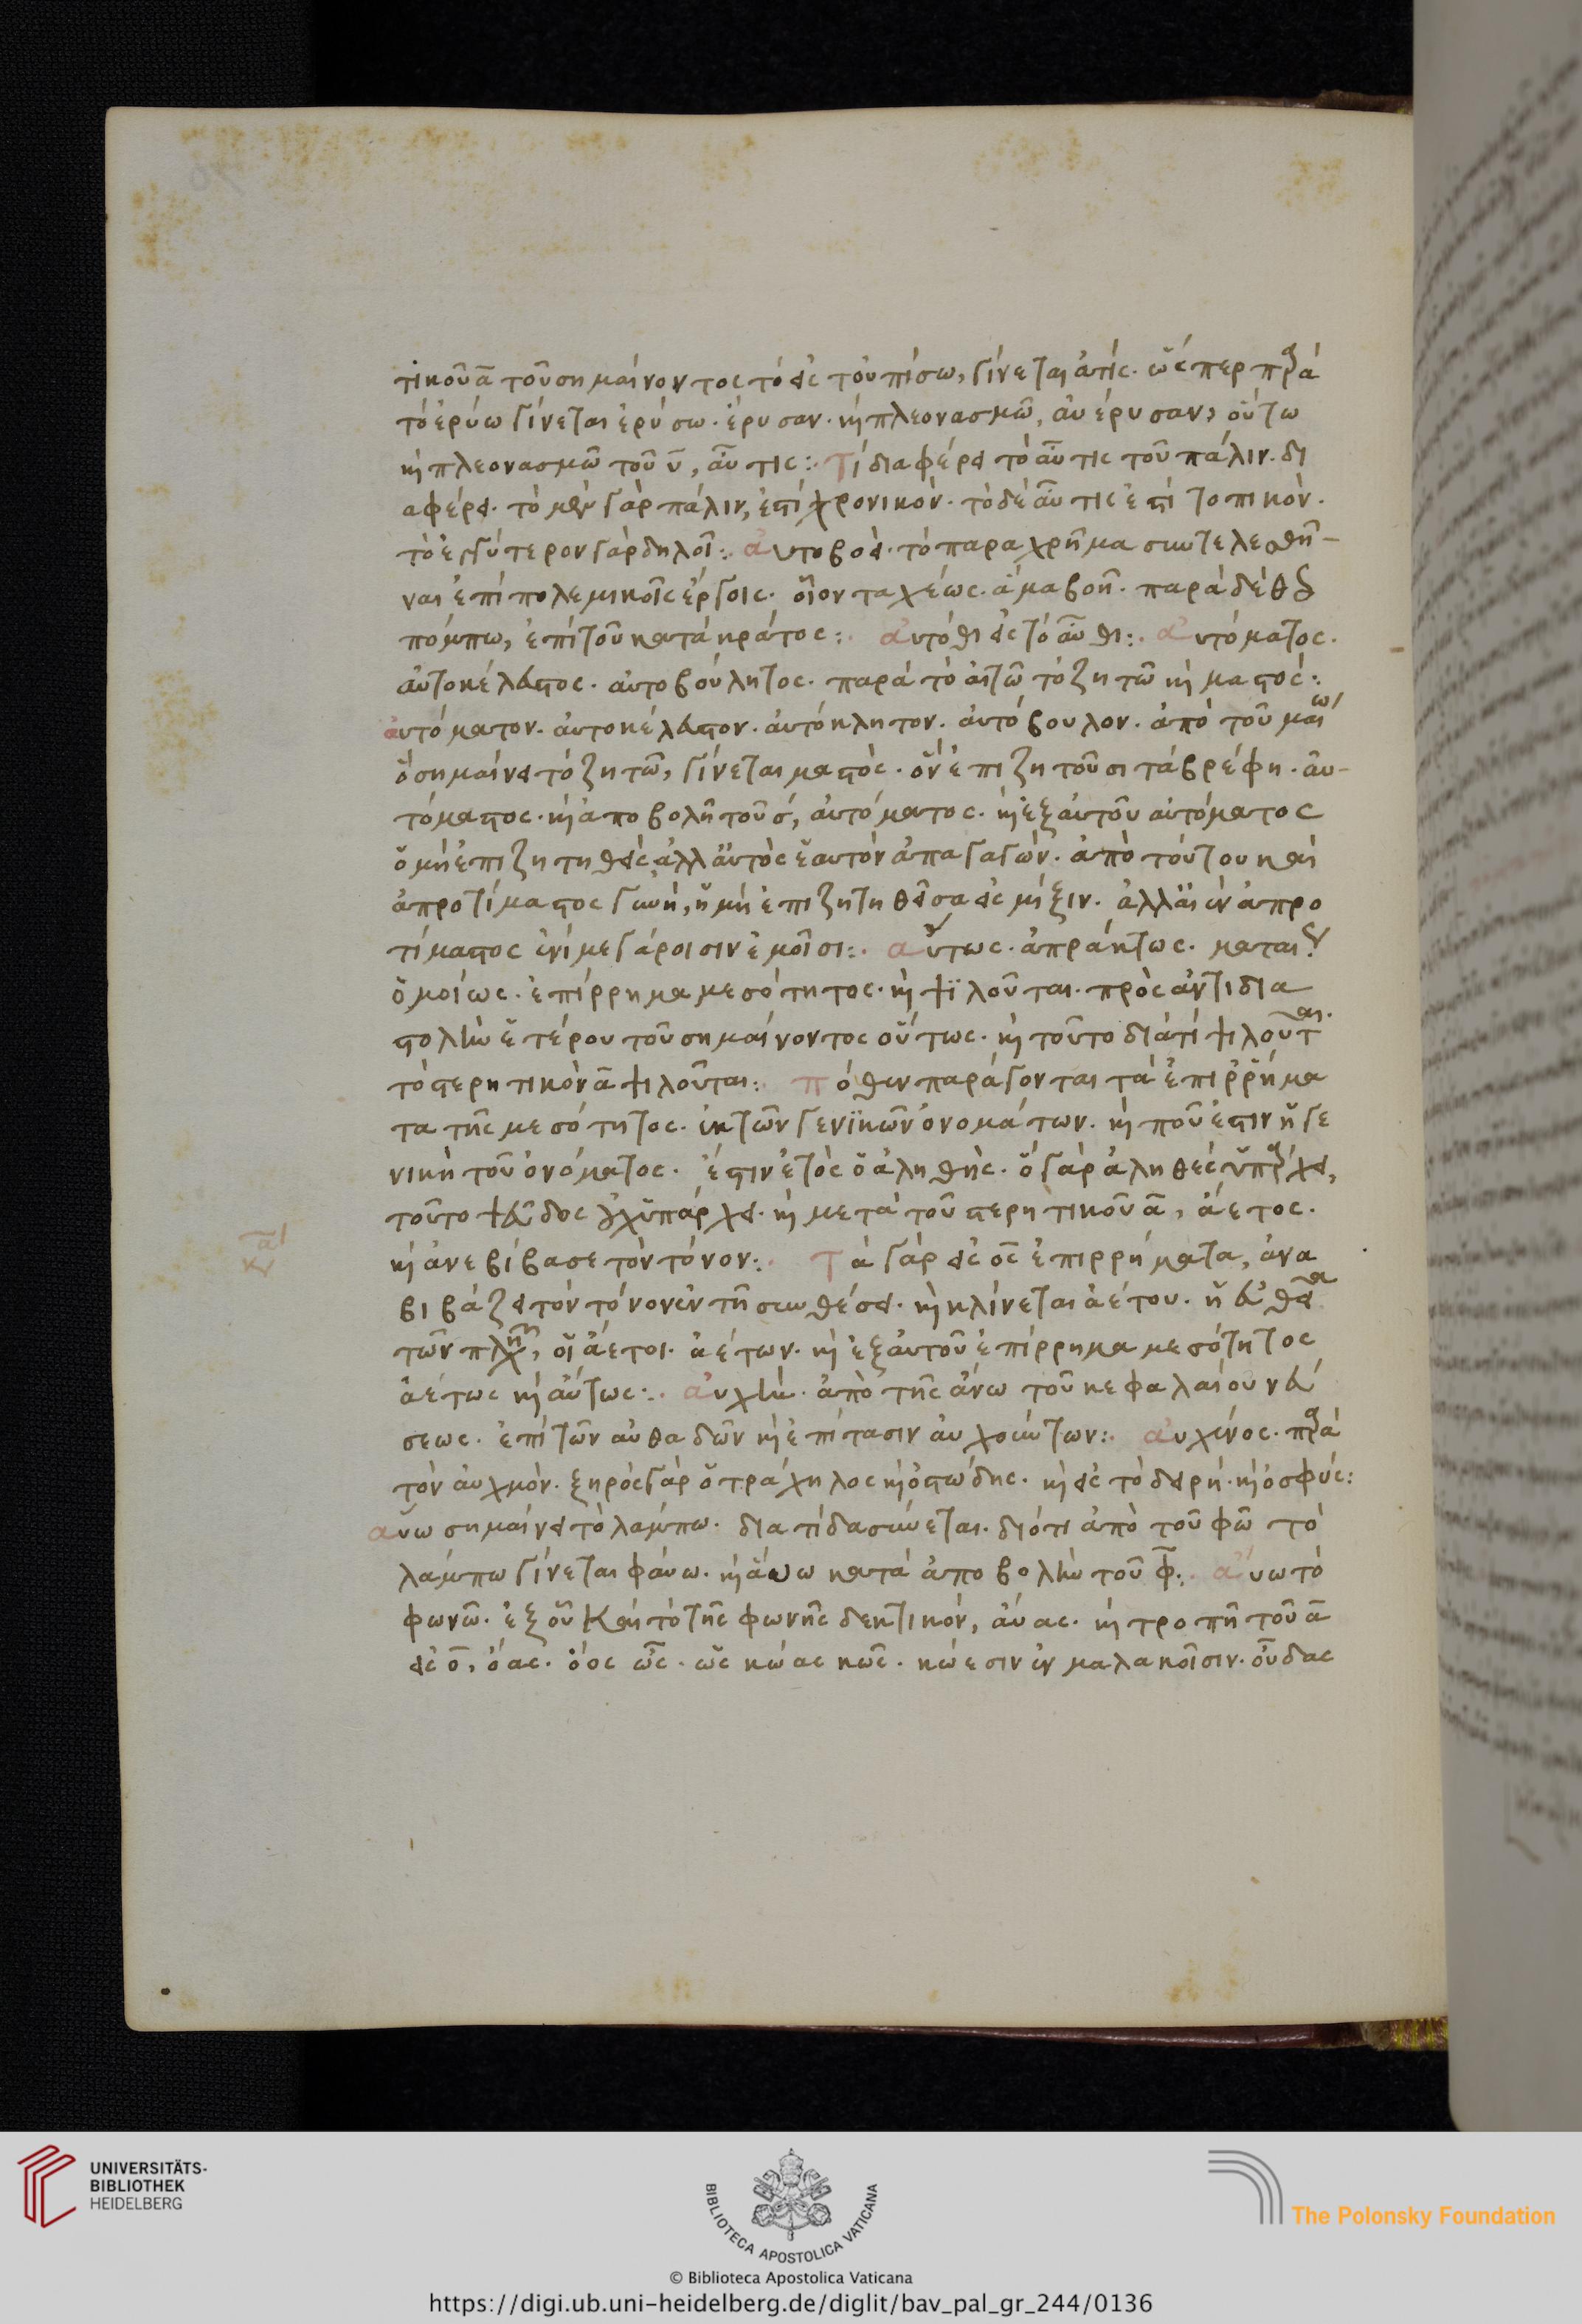 τικοῦ ᾱ τοῦ σημαίνοντος τὸ εἰς τοὐπίσω, γίνεται ἀτίς. ὥσπερ παρὰ
τὸ ἐρύω γίνεται ἐρύσω. ἔρυσαν. καὶ πλεονασμῶ, αὐέρυσαν, οὕτω
καὶ πλεονασμῶ τοῦ ῡ, αὖτις:. Τί διαφέρει τὸ αὖτις τοῦ πάλιν. δι
αφέρει. τὸ μὲν γὰρ πάλιν, ἐστὶ χρονικὸν. τὸ δὲ αὖτις ἐστὶ τοπικὸν.
τὸ ἐγγύτερον γὰρ δηλοῖ:. αυτοβοεί. τὸ παραχρῆμα συντελεσθῆ-
ναι ἐπὶ πολεμικοῖς ἔργοις. οἷον ταχέως. ἅμα βοῆ. παρὰ δὲ
πόμπω, ἐπὶ τοῦ κατὰ κράτος:. αὐτόθι εἰς τὸ αὖθι:. αὐτόματος.
αὐτοκέλευστος. αὐτοβούλητος. παρὰ τὸ τὸ ζητῶ καὶ μαστός:.
αυτόματον. αὐτοκέλευστον. αὐτόκλητον. αὐτόβουλον. ἀπὸ τοῦ μαίω
ὃ σημαίνει τὸ ζητῶ, γίνεται μαστὸς. ὃν ἐπιζητοῦσι τὰ βρέφη. αὐ-
τόμαστος. καὶ ἀποβολῆ τοῦ σ, αὐτόματος. καὶ ἐξ αὐτοῦ αὐτόματος
ὁ μὴ ἐπιζητηθεὶς ἀλλ' αὐτὸς ἑαυτὸν ἀπαγαγών. ἀπὸ τούτου καὶ
ἀπροτίμαστος γυνή, ἡ μὴ ἐπιζητηθεῖσα εἰς μίξιν. ἀπρο
τίμαστος ἐνὶ μεγάροισιν ἐμοῖσι:. αὔτως. ἀπράκτως. ματαίως
ὁμοίως. ἐπίρρημα μεσότητος. καὶ ψιλοῦται. πρὸς ἀντιδια
στολὴν ἑτέρου τοῦ σημαίνοντος οὕτως. καὶ τοῦτο διὰ τί ψιλοῦται.
τὸ στερητικὸν ᾱ ψιλοῦται:. πόθεν παράγονται τὰ ἐπιρρήμα
τα τῆς μεσότητος. ἐκ τῶν γενικῶν ὀνομάτων. καὶ ποῦ ἐστιν ἡ γε
νικὴ τοῦ ὀνόματος. ἔστιν ἐτὸς ὁ ἀληθὴς. ὃ γὰρ ἀληθὲς ὑπάρχει,
τοῦτο ψεῦδος οὐχ ὑπάρχει. καὶ μετὰ τοῦ στερητικοῦ ᾱ, ἄετος.
καὶ ἀνεβίβασε τὸν τόνον:. Τὰ γὰρ εἰς ο̄ς ἐπιρρήματα, ἀνα
βιβάζει τὸν τόνον ἐν τῆ συνθέσει. καὶ κλίνεται ἀέτου. ἡ εὐθεῖα
τῶν πληθυντικῶν, οἱ ἄετοι. ἀέτων. καὶ ἐξ αὐτοῦ ἐπίρρημα μεσότητος
ἀέτως καὶ αὔτως:. αὐχήν. ἀπὸ τῆς ἄνω τοῦ κεφαλαίου νεύ
σεως. ἐπὶ τῶν αὐθαδῶν καὶ ἐπίτασιν αὐχούντων:. αυχένος. παρὰ
τὸν αὐχμὸν. ξηρὸς γὰρ ὁ τράχηλος καὶ ὀστώδης. καὶ εἰς τὸ δειρή. καὶ ὀσφύς:
αὕω σημαίνει τὸ λάμπω. διατί δασύνεται. διότι ἀπὸ τοῦ φῶ τὸ
λάμπω γίνεται φαύω. καὶ αὕω κατὰ ἀποβολὴν τοῦ φ̄:. αὔω τὸ
φωνῶ. ἐξ οὗ καὶ τὸ τῆς φωνῆς δεκτικόν, αὖας. καὶ τροπῆ τοῦ ᾱ
εἰς ο̄, ὄας. ὄος ὦς. ὡς κώας κῶς. κώεσιν ἐν μαλακοῖσιν. οὖδας
UNIVERSITÄTS-
BIBLIOTHEK
HEIDELBERG
BIBLIOTECA APOSTOLICA VATICANA
The Polonsky Foundation
© Biblioteca Apostolica Vaticana
https://digi.ub.uni-heidelberg.de/diglit/bav_pal_gr_244/0136